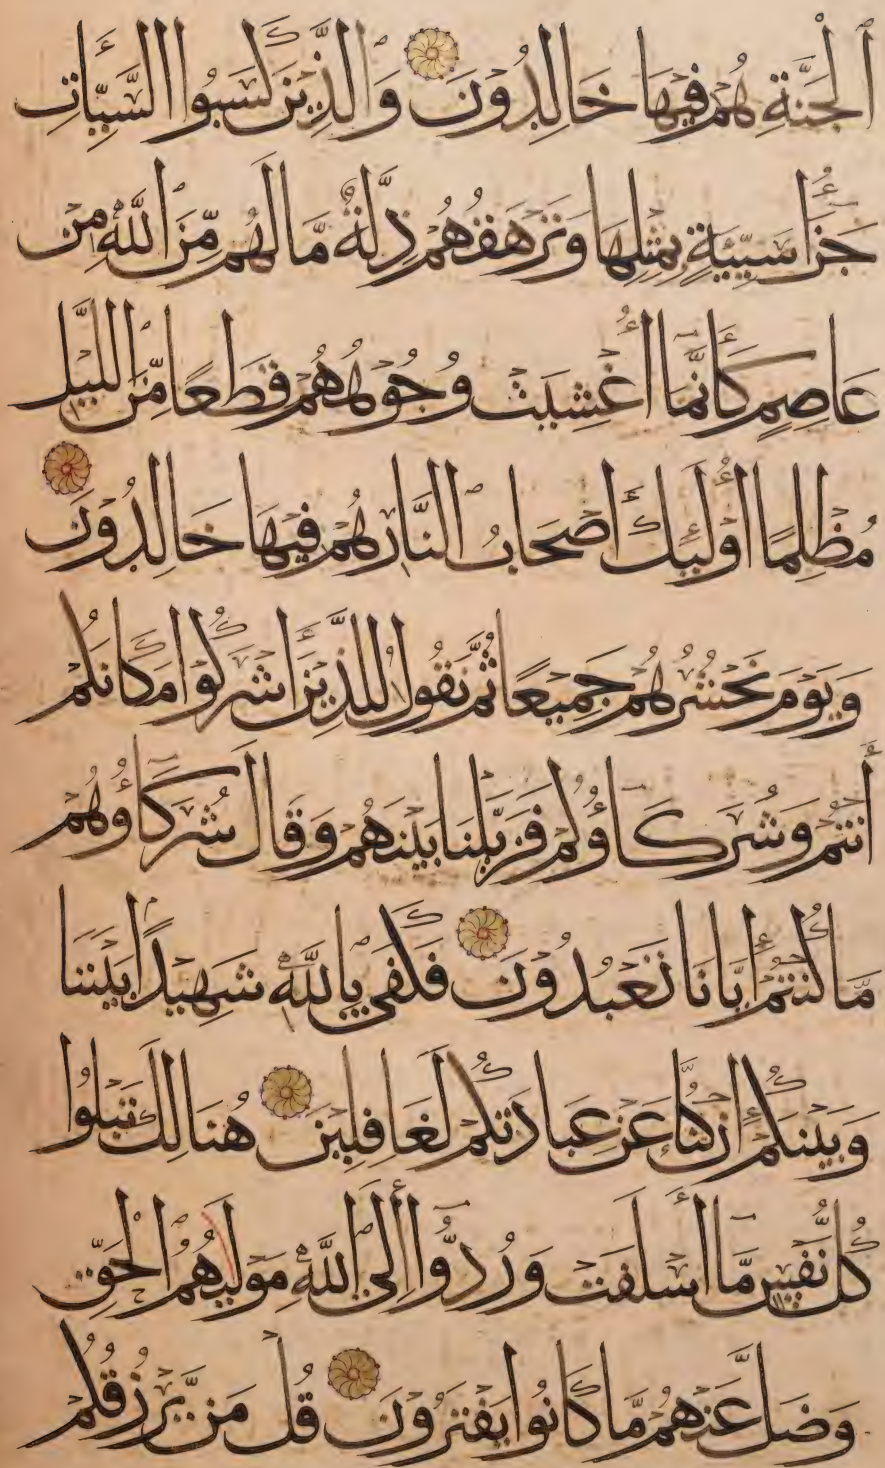 ٱلْجَنَّةِ هُمْ فِيهَا خَالِدُونَ وَالَّذِينَ كَسَبُوا السَّيِّأَتِ
جَزَاءُ سَيِّئَةٍ بِمِثْلِهَا وَتَرْهَقُهُمْ ذِلَّةٌ مَّا لَهُم مِّنَ اللَّهِ مِنْ
عَاصِمٍ كَأَنَّمَا أُغْشِيَتْ وُجُوهُهُمْ قِطَعًا مِّنَ اللَّيْلِ
مُظْلِمًا أُولَئِكَ أَصْحَابُ النَّارِ هُمْ فِيهَا خَالِدُونَ
وَيَوْمَ نَحْشُرُهُمْ جَمِيعًا ثُمَّ نَقُولُ لِلَّذِينَ أَشْرَكُوا مَكَانَكُمْ
أَنْتُمْ وَشُرَكَاؤُكُمْ فَزَيَّلْنَا بَيْنَهُمْ وَقَالَ شُرَكَاؤُهُمْ
مَّا كُنْتُمْ إِيَّانَا تَعْبُدُونَ فَكَفَى بِاللَّهِ شَهِيدًا بَيْنَنَا
وَبَيْنَكُمْ إِنْ كُنَّا عَنْ عِبَادَتِكُمْ لَغَافِلِينَ هُنَالِكَ تَبْلُوا
كُلُّ نَفْسٍ مَّا أَسْلَفَتْ وَرُدُّوا إِلَى اللَّهِ مَوْلَيهُمُ الْحَقِّ
وَضَلَّ عَنْهُمْ مَّا كَانُوا يَفْتَرُونَ قُلْ مَنْ يَرْزُقُكُمْ